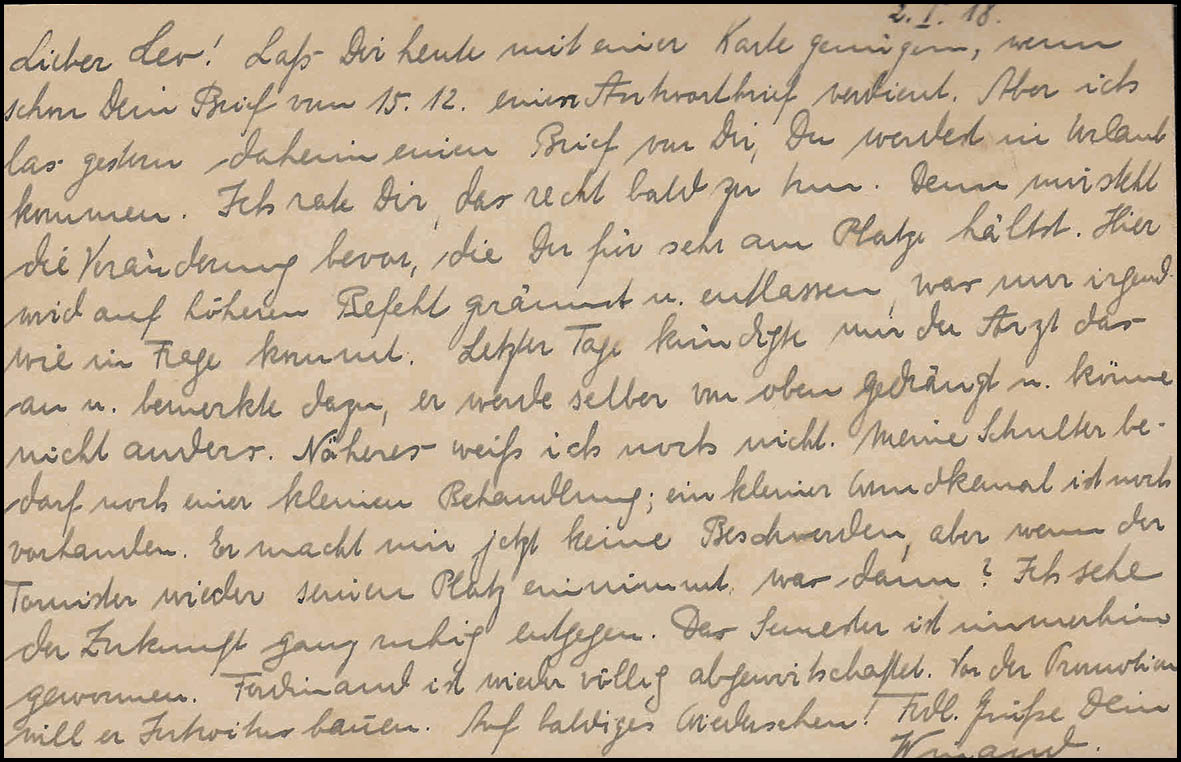 2. I. 18.
Lieber Leo! Laß Dir heute mit einer Karte genügen, wenn
schon Dein Brief vom 15. 12. einen Antwortbrief verdient. Aber ich
las gestern daheim einen Brief von Dir, Du werdest in Urlaub
kommen. Ich rate Dir, das recht bald zu tun. Denn mir steht
die Veränderung bevor, die Du für sehr am Platze hältst. Hier
wird auf höheren Befehl geräumt u. entlassen, was nur irgend-
wie in Frage kommt. Letzter Tage kündigte mir der Arzt das
an u. bemerkte dazu, er werde selber von oben gedrängt u. könne
nicht anders. Näheres weiß ich noch nicht. Meine Schulter be-
darf noch einer kleinen Behandlung; ein kleiner Wundkanal ist noch
vorhanden. Er macht mir jetzt keine Beschwerden, aber wenn der
Tornister wieder seinen Platz einnimmt, was dann? Ich sehe
der Zukunft ganz ruhig entgegen. Das Semester ist immerhin
gewonnen. Ferdinand ist wieder völlig abgewirtschaftet. Vor der Promotion
will er Introitus bauen. Auf baldiges Wiedersehen! Frdl. Grüße Dein